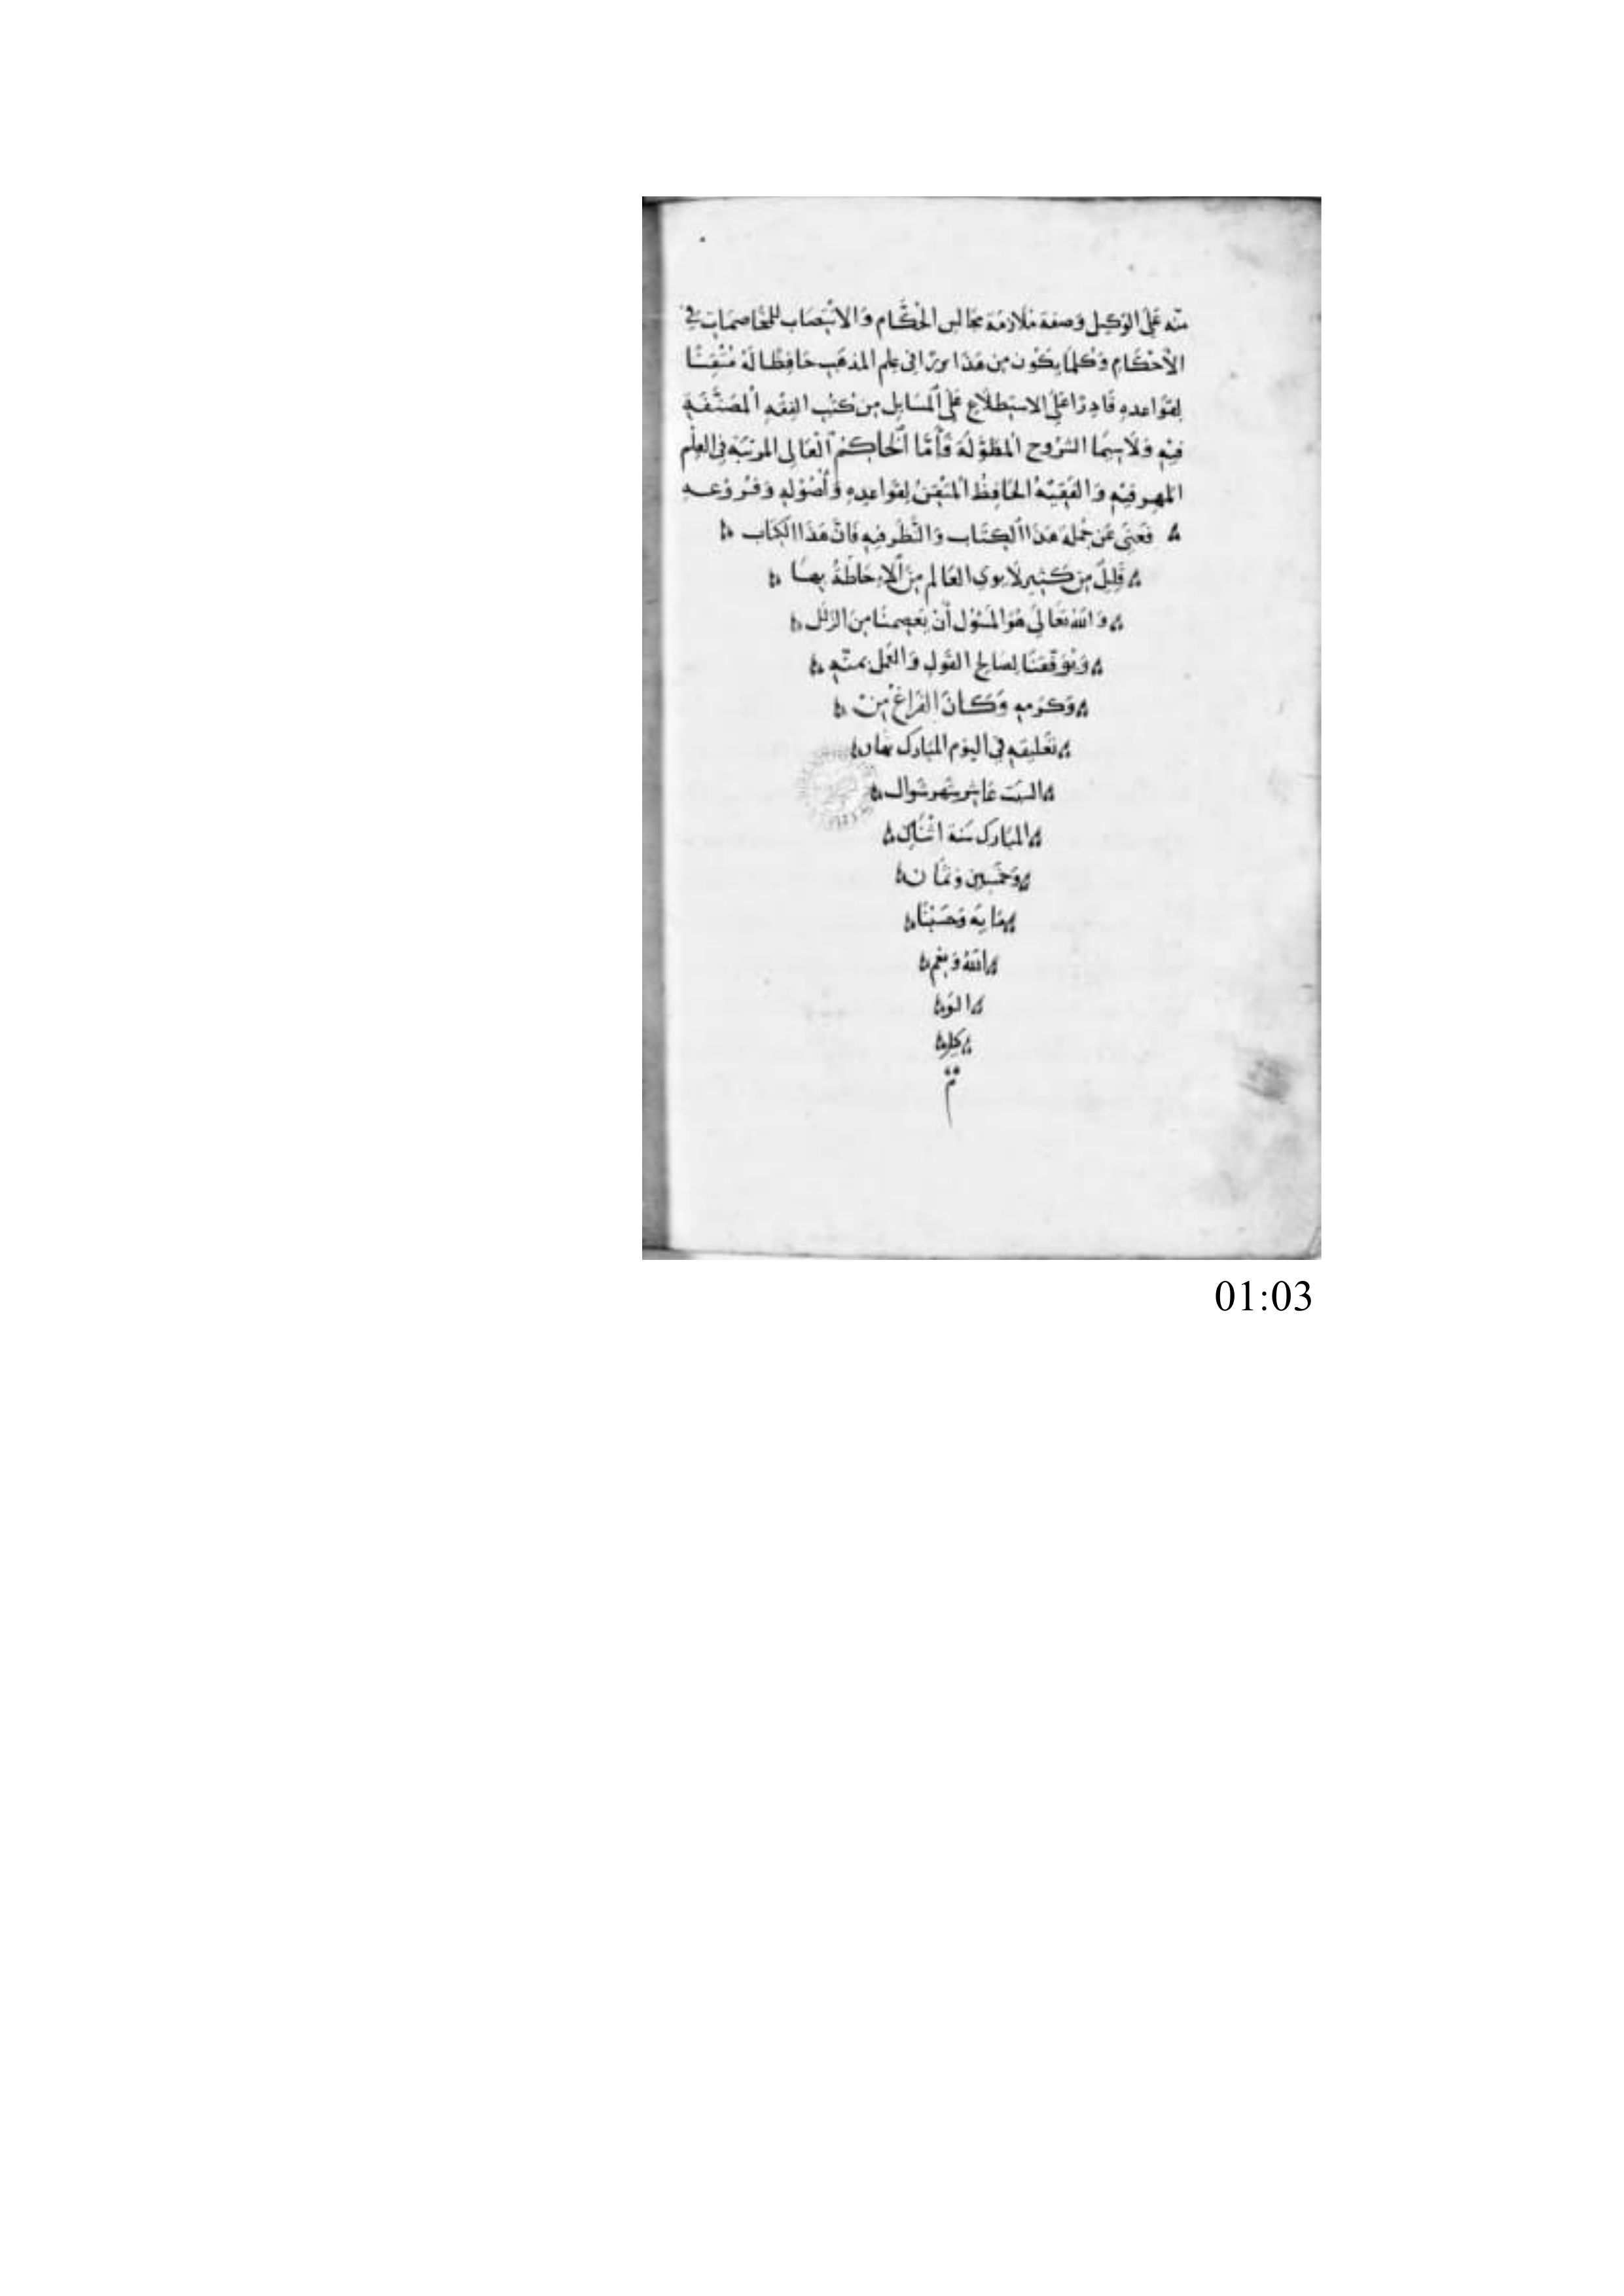 منه على الوكيل وصفة ملازمة مجالس الحكام والانتصاب للمخاصمات في
الأحكام وكلما يكون من هذا في علم المذهب حافظا له متقنا
لقواعده قادرا على الاستطلاع على المسايل من كتب الفقه المصنفة
فيه ولا سيما الشروح المطولة فأما الحاكم العالي المرتبة في العلم
المهر فيه والفقيه الحافظ المتقن لقواعده وأصوله وفروعه
فغني عن جملة هذا الكتاب والنظر فيه فان هذا الكتاب
قليل من كثير العالم من الإحاطة بها
والله تعالى هو المسئول أن يعصمنا من الزلل
ويوفقنا لصالح القول والعمل بمنه
وكرمه وكان الفراغ من
تعليقه في اليوم المبارك نهار
السبت عاشر شهر شوال
المبارك سنة اثنان
وخمسين وثمان
ماية وحسبنا
الله ونعم
الو
كيل
تم
01:03